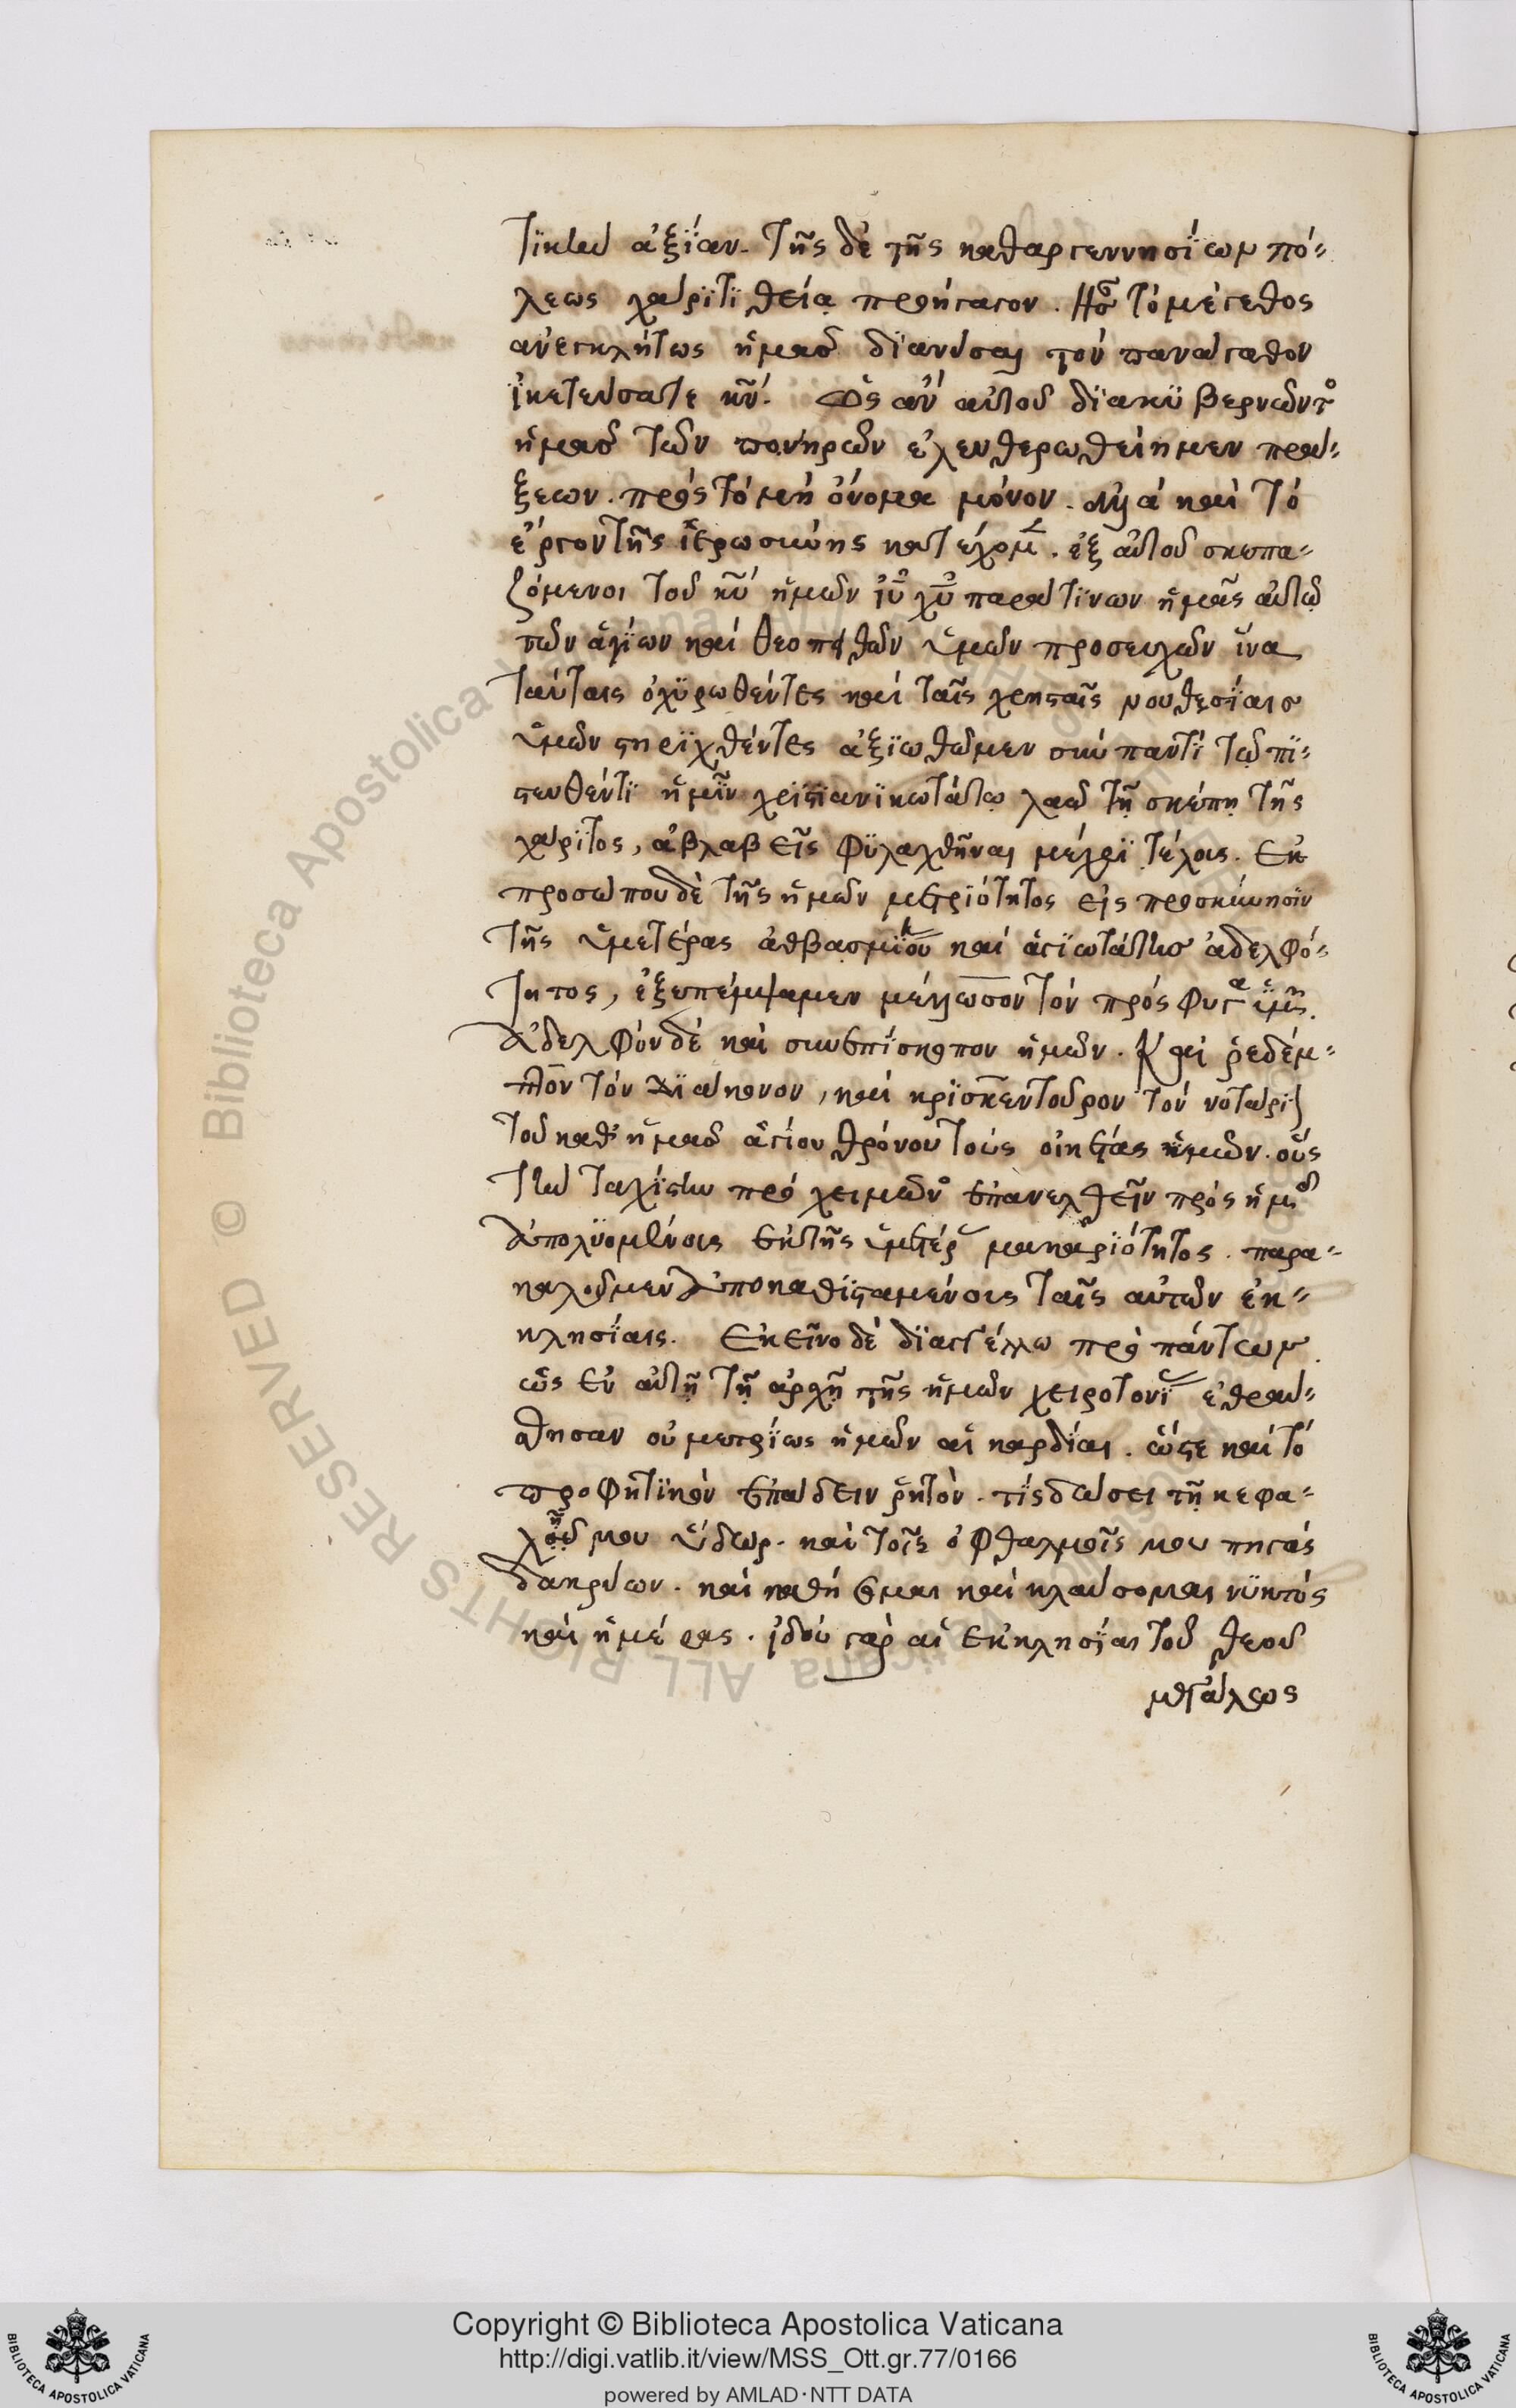 τϊκὴν ἀξΐαν. τῆς δὲ τῆς καθαργεννησΐων πό-
λεως χάρϊτϊ θεία προήγαγον. τὸ μέγεθος
ἀνεγκλήτως ἡμᾶσ δϊανύσαι τὸν πανάγαθον
ϊκετεύσατε κν̄. ὡς ἂν αὐτοῦ δϊακϋβερνῶντο
ἡμᾶσ τῶν πονηρῶν ἐλευθερωθείημεν πρά-
ξεων. πρὸς τὸ μὴ ὄνομα μόνον. ἀλλὰ καὶ τὸ
ἔργον τῆς ἱερωσύνης κατέχομ. ἐξ αὐτοῦ σκεπα-
ζόμενοι τοῦ κῦ ἡμῶν ἰῦ χῦ παρατϊνων ἡμᾶς αὐτῶ
τῶν ἁγΐων καὶ θεοπειθῶν ὑμῶν προσευχῶν ἵνα
ταύταις ὀχϋρωθέντες καὶ ταῖς χρηςαῖς νουθεσΐαισ
ὑμῶν ςηρϊχθέντες ἀξϊωθῶμεν σὺν παντὶ τῷ πϊ-
ςευθέντϊ ἡμῖν χρϊςϊανϊκωτάτῳ λαῷ τῇ σκέπῃ τῆς
χάρϊτος, ἀβλαβεῖς φϋλαχθῆναι μέχρϊ τέλους. Ἐκ
προσώπου δὲ τῆς ἡμῶν μετρϊότητος εἰς προσκύνησϊν
τῆς ὑμετέρας ἀθβασμϊου καὶ ἁγϊωτάτησ ἀδελφό-
τητος, ἐξεπέμψαμεν μέλλωσον τὸν πρὸς φυγα ὑμῖν.
ἀδελφὸν δὲ καὶ συνεπΐσκοπον ἡμῶν. Καὶ ῥεδέμ-
πτον τὸν δϊάκονον, καὶ κρϊσκεντοῦρον τὸν νοτάρϊ
τοῦ καθ' ἡμᾶσ ἁγΐου θρόνου τοὺς οἰκείας ἡμῶν. οὓς
τὴν ταχίςην πρὸ χειμῶνο ἐπανελθεῖν πρὸς ἡμᾶσ
ἀπολϋομένους ἐκ τῆς ὑμετέρ μακαρϊότητος. παρα-
καλοῦμεν ἀποκαθϊςαμένους ταῖς αὐτῶν ἐκ-
κλησΐαις. Ἐκεῖνο δὲ δϊαστέλλω πρὸ πάντων
ὡς ἐν αὐτῇ τῇ ἀρχῇ τῆς ἡμῶν χειροτονϊ ἐθραύ-
σθησαν οὐ μετρΐως ἡμῶν αἱ καρδΐαι. ὥςε καὶ τὸ
προφητϊκὸν ἐπάδειν ῥητὸν. τίς δώσει τῇ κεφα-
λῇ μου ὕδωρ. καὶ τοῖς ὀφθαλμοῖς μου πηγάς
δακρύων. καὶ καθήσομαι καὶ κλαύσομαι νϋκτὸς
καὶ ἡμέρας. ἰδοὺ γὰρ αἱ ἐκκλησΐαι τοῦ θεοῦ
μεγάλως
Copyright © Biblioteca Apostolica Vaticana
http://digi.vatlib.it/view/MSS_Ott.gr.77/0166
powered by AMLAD·NTT DATA